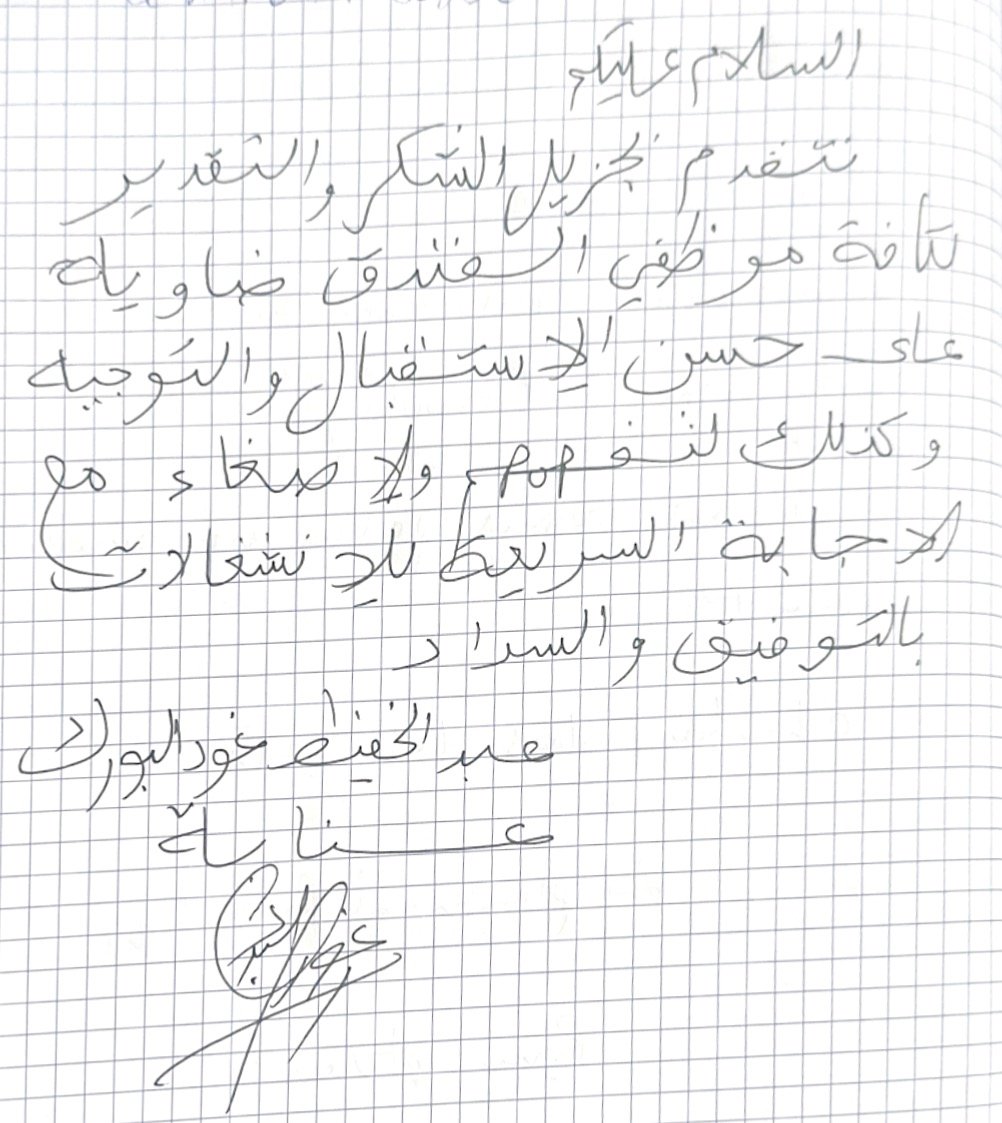 السلام عليكم
نتقدم بجزيل الشكر والتقدير
لكافة موظفي الفندق ضاوية
على حسن الإستقبال والتوجيه
وكذلك لتفهمهم ولإصغاء مع
الاجابة السريعة للإنشغالات
بالتوفيق والسداد
عبد الحفيظ
عنابة